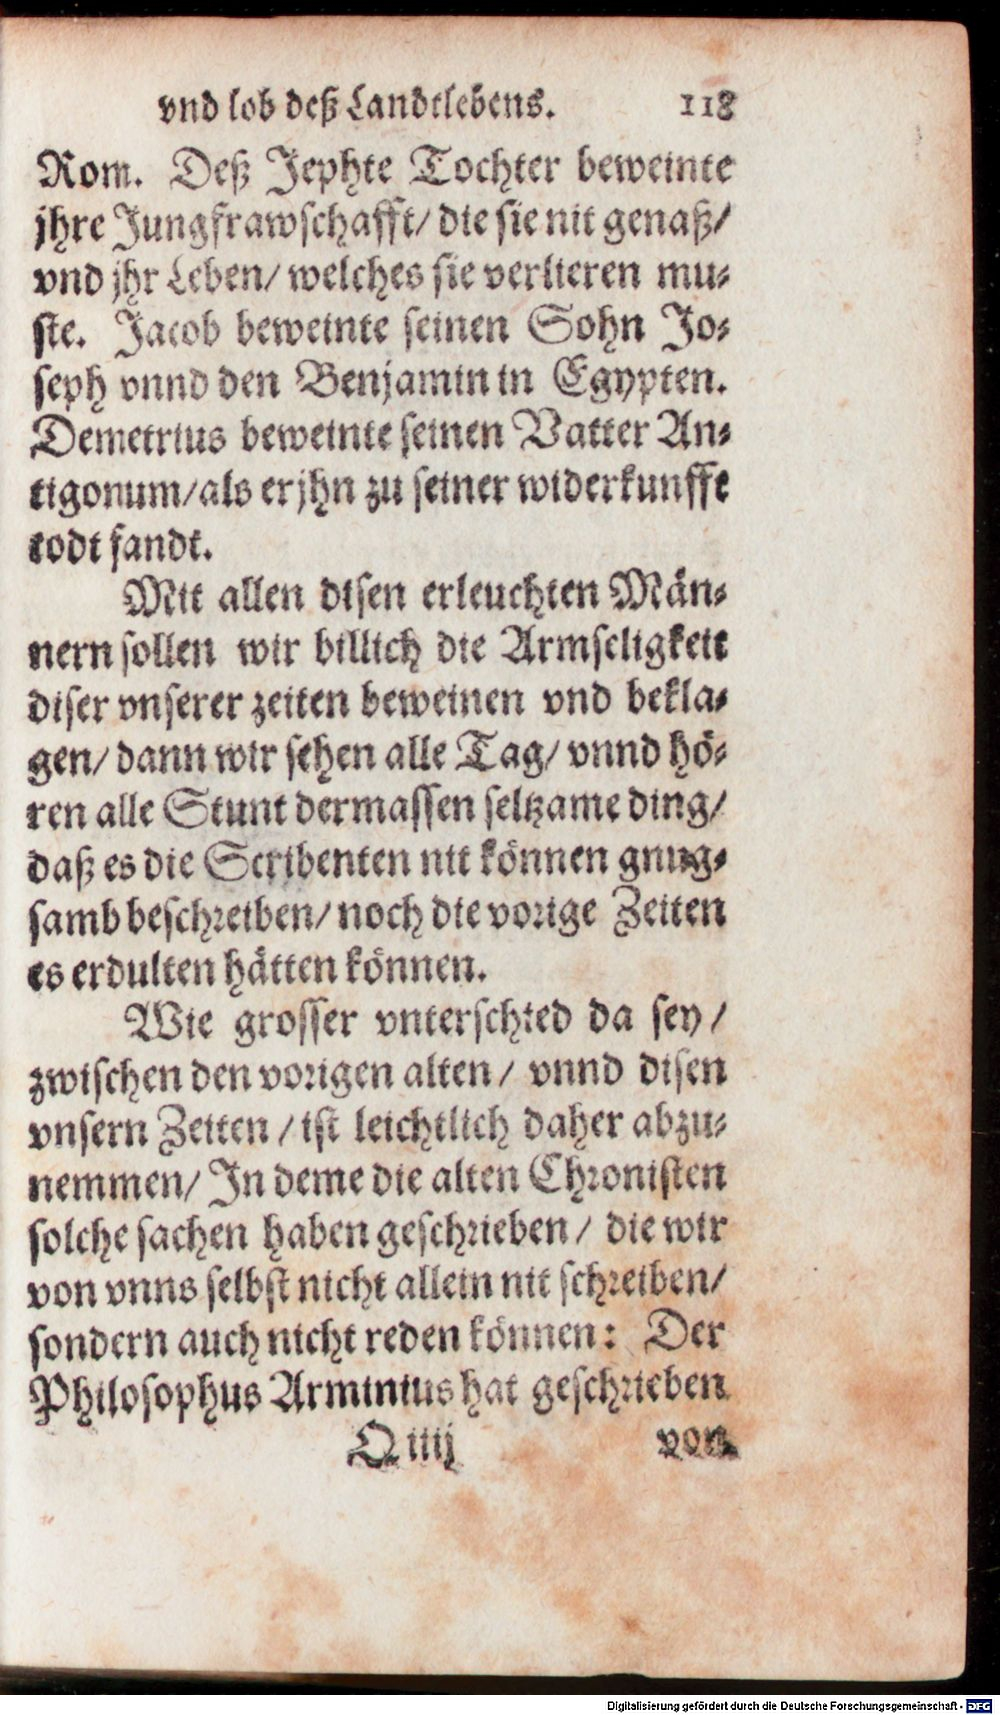 vnd lob deß Landtlebens. 118
Rom. Deß Jephte Tochter beweinte
jhre Jungfrawschafft/ die sie nit genaß/
vnd jhr Leben/ welches sie verlieren mu-
ste. Jacob beweinte seinen Sohn Jo-
seph vnnd den Benjamin in Egypten.
Demetrius beweinte seinen Vatter An-
tigonum/ als er jhn zu seiner widerkunfft
todt fandt.
Mit allen disen erleuchten Män-
nern sollen wir billich die Armseligkeit
diser vnserer zeiten beweinen vnd bekla-
gen/ dann wir sehen alle Tag/ vnnd hö-
ren alle Stunt dermassen seltzame ding/
daß es die Scribenten nit können gnug-
samb beschreiben/ noch die vorige Zeiten
es erdulten hätten können.
Wie grosser vnterschied da sey/
zwischen den vorigen alten/ vnnd disen
vnsern Zeiten/ ist leichtlich daher abzu-
nemmen/ In deme die alten Chronisten
solche sachen haben geschrieben/ die wir
von vnns selbst nicht allein nit schreiben/
sondern auch nicht reden können: Der
Philosophus Arminius hat geschrieben
Q iiij von
Digitalisierung gefördert durch die Deutsche Forschungsgemeinschaft - DFG